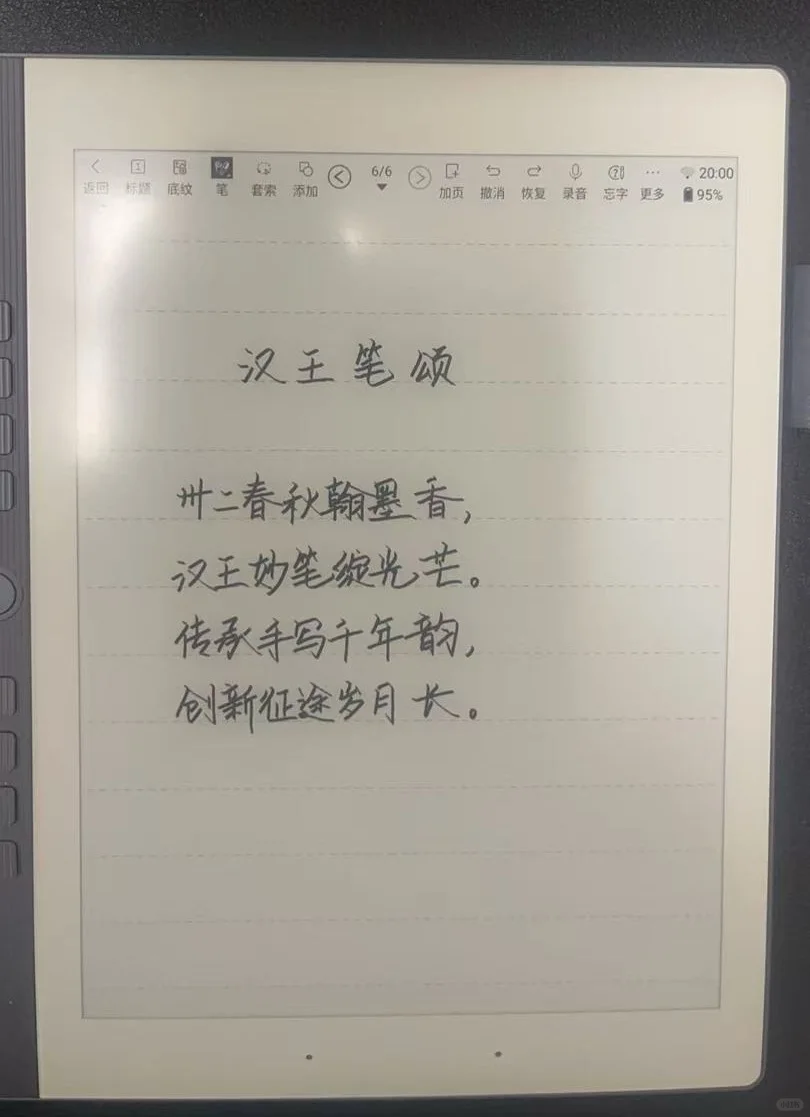 返回 标题 底纹 笔 套索 添加 6/6 加页 撤消 恢复 录音 忘字 更多 20:00 95%
汉王笔颂
卅二春秋翰墨香,
汉王妙笔绽光芒。
传承手写千年韵,
创新征途岁月长。